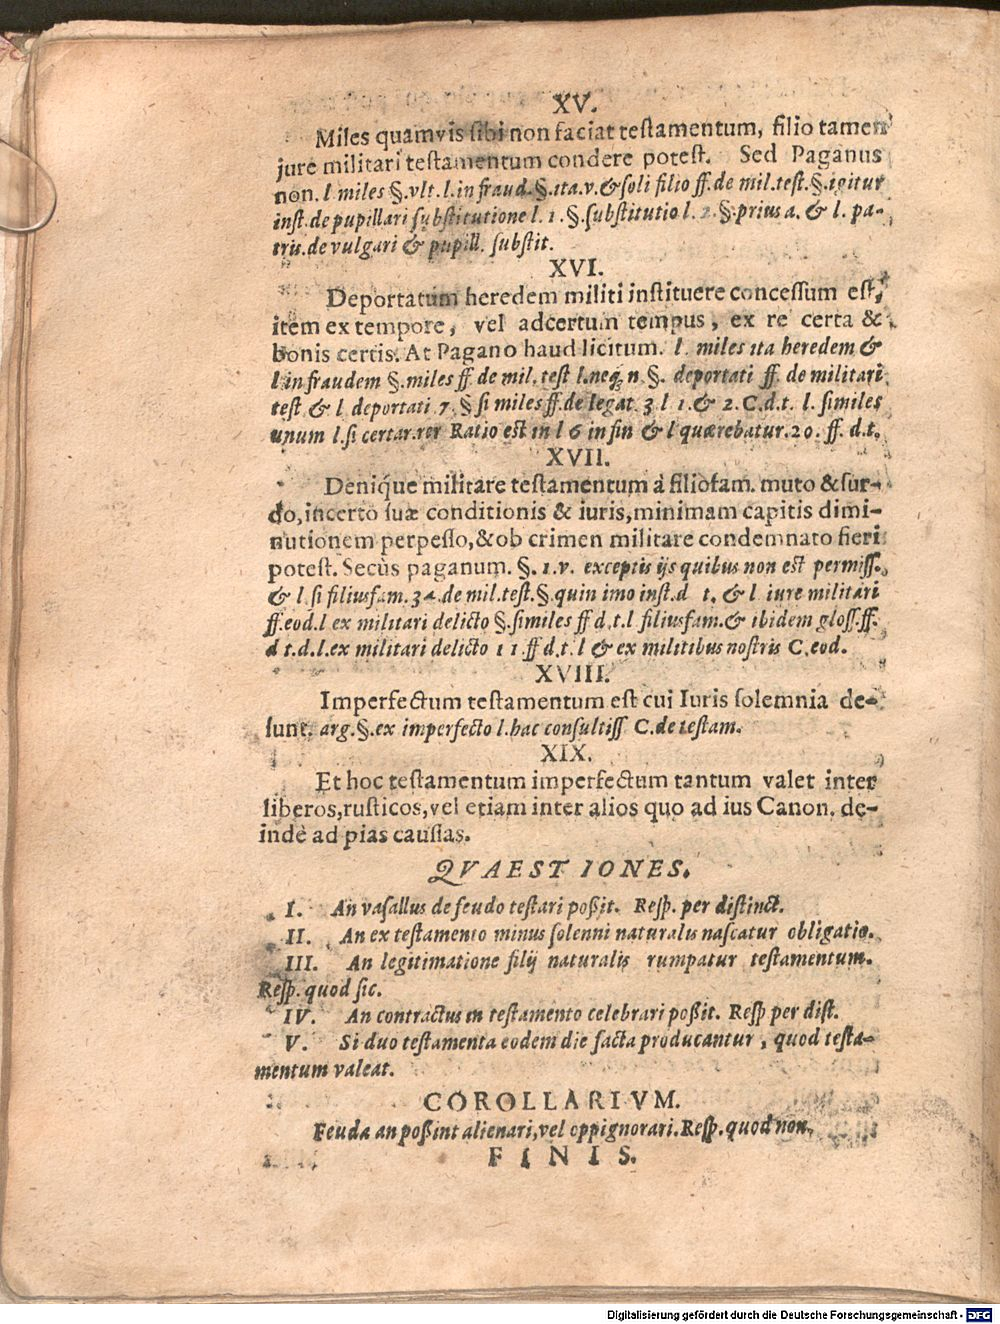 XV.
Miles quamvis sibi non faciat testamentum, filio tamen
jure militari testamentum condere potest. Sed Paganus
non. l miles §. vlt. l. in fraud. §. ita. v. & soli filio ff. de mil. test. §. igitur
inst. de pupillari substitutione l. 1. §. substitutio l. 2. §. prius a. & l. pa-
tris. de vulgari & pupill. substit.
XVI.
Deportatum heredem militi instituere concessum est,
item ex tempore, vel ad certum tempus, ex re certa &
bonis certis. At Pagano haud licitum. l. miles ita heredem &
l in fraudem §. miles ff. de mil. test l. neq; n §. deportati ff. de militari
test & l deportati 7. § si miles ff. de legat. 3 l 1. & 2. C. d. t. l. si miles
unum l. si certar. rer Ratio est in l 6 in fin & l quærebatur. 20. ff. d. t.
XVII.
Denique militare testamentum à filiofam. muto & sur-
do, incerto suæ conditionis & iuris, minimam capitis dimi-
nutionem perpesso, & ob crimen militare condemnato fieri
potest. Secùs paganum. §. 1. v. exceptis ijs quibus non est permiss.
& l si filiusfam. 34. de mil. test. §. quin imo inst. d t. & l iure militari
ff. eod. l ex militari delicto §. si miles ff d. t. l filiusfam. & ibidem gloss. ff.
d t. d. l. ex militari delicto 11. ff d. t. l & ex militibus nostris C. eod.
XVIII.
Imperfectum testamentum est cui Iuris solemnia de-
sunt. arg. §. ex imperfecto l. hac consultiss C. de testam.
XIX.
Et hoc testamentum imperfectum tantum valet inter
liberos, rusticos, vel etiam inter alios quo ad ius Canon. de-
indè ad pias caussas.
QVAESTIONES.
I. An vasallus de feudo testari poßit. Resp. per distinct.
II. An ex testamento minus solenni naturalis nascatur obligatio.
III. An legitimatione filij naturalis rumpatur testamentum.
Resp. quod sic.
IV. An contractus in testamento celebrari poßit. Resp per dist.
V. Si duo testamenta eodem die facta producantur, quod testa-
mentum valeat.
COROLLARIVM.
Feuda an poßint alienari, vel oppignorari. Resp. quod non.
FINIS.
Digitalisierung gefördert durch die Deutsche Forschungsgemeinschaft - DFG